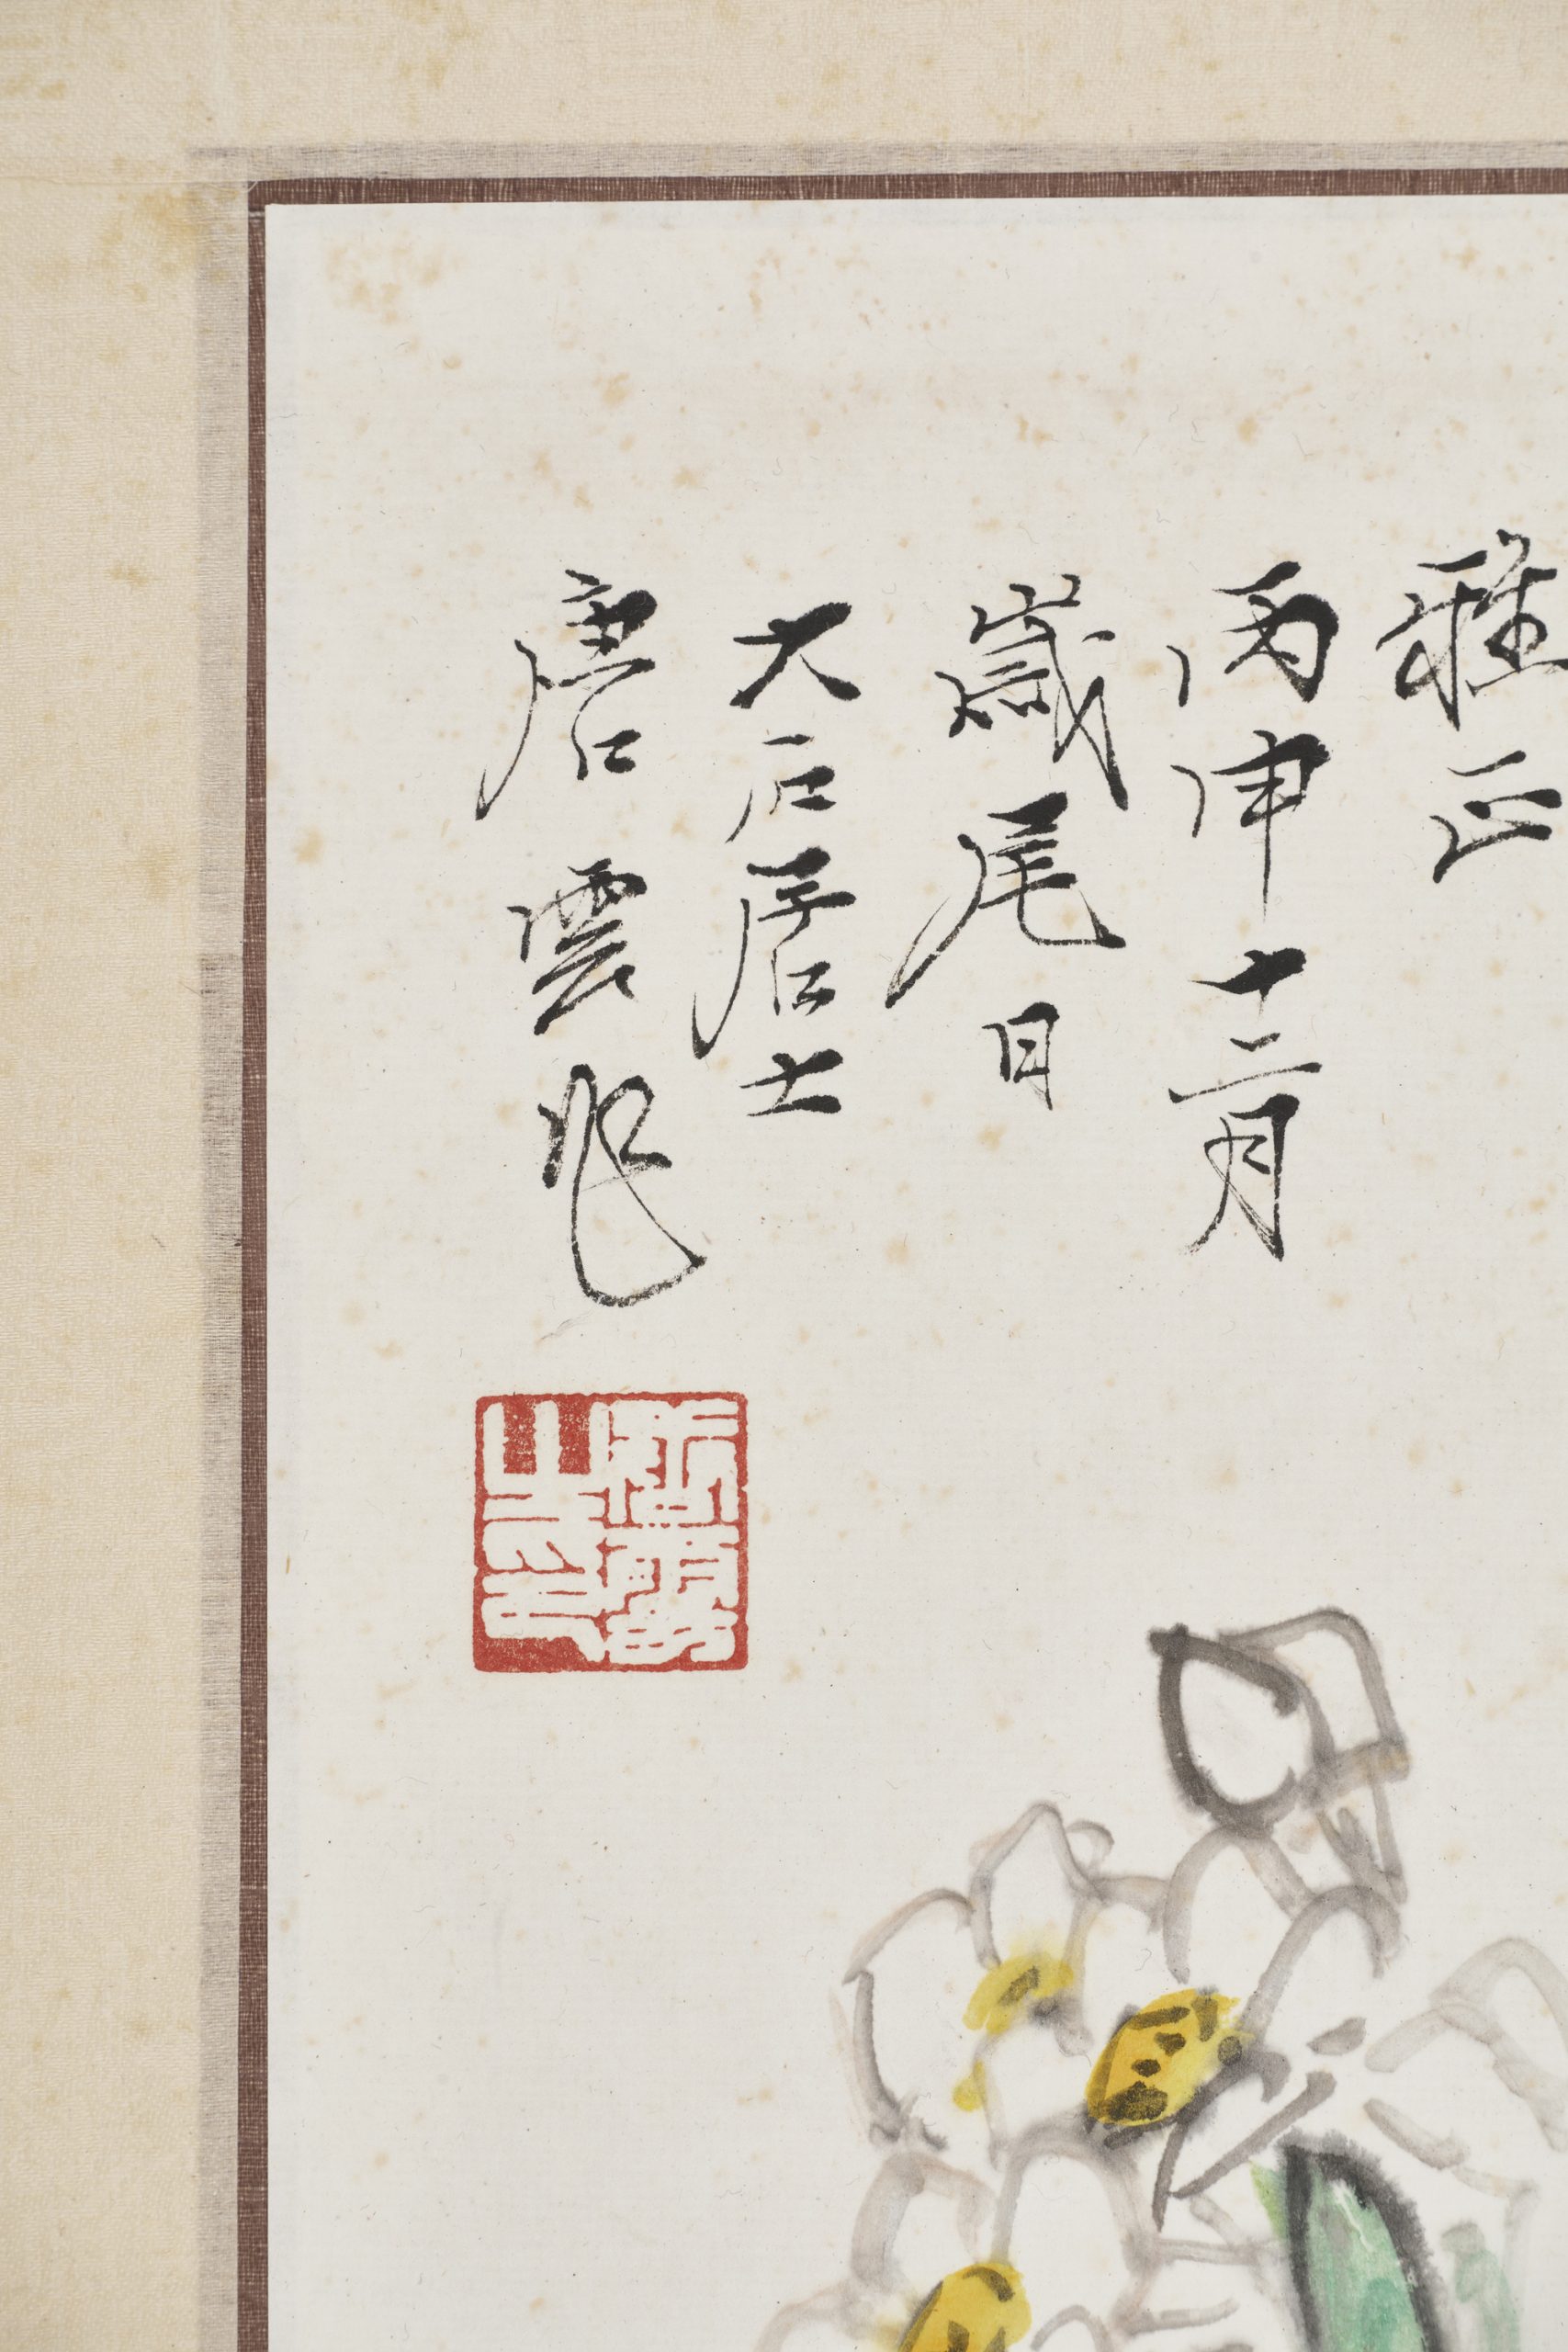 雅正
丙申十二月
歲尾日
大石居士
唐雲作